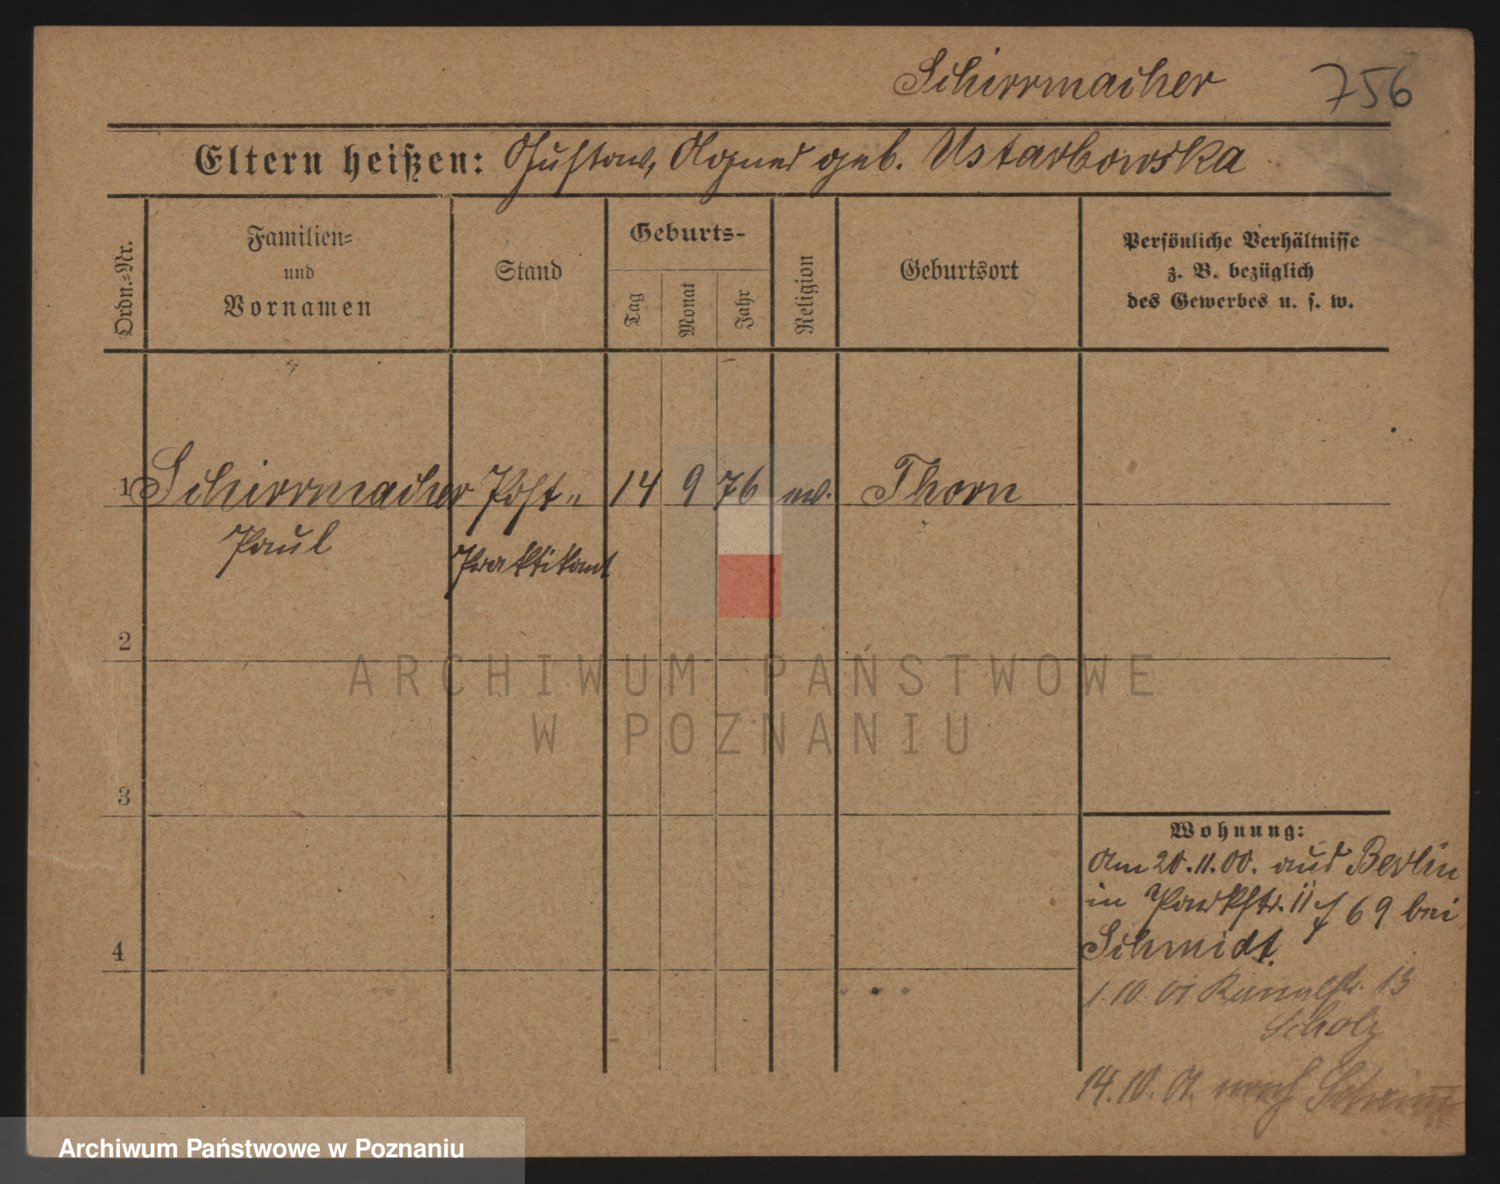 Schirrmacher 756
Eltern heißen: Gustav, Agnes geb. Ustarbowska
Ordn.-Nr.
Familien-
und
Vornamen
Stand
Geburts-
Tag
Monat
Jahr
Religion
Geburtsort
Persönliche Verhältnisse
z. B. bezüglich
des Gewerbes u. s. w.
1 Schirrmacher Post- 14 9 76 ev. Thorn
Paul Praktikant
2
3
4
Wohnung:
Am 20.11.00. aus Berlin
in Parkstr. 69 bei
Schmidt.
1.10.01 Kanalstr. 13
Scholz
14.10.01. nach
ARCHIWUM PAŃSTWOWE
W POZNANIU
Archiwum Państwowe w Poznaniu